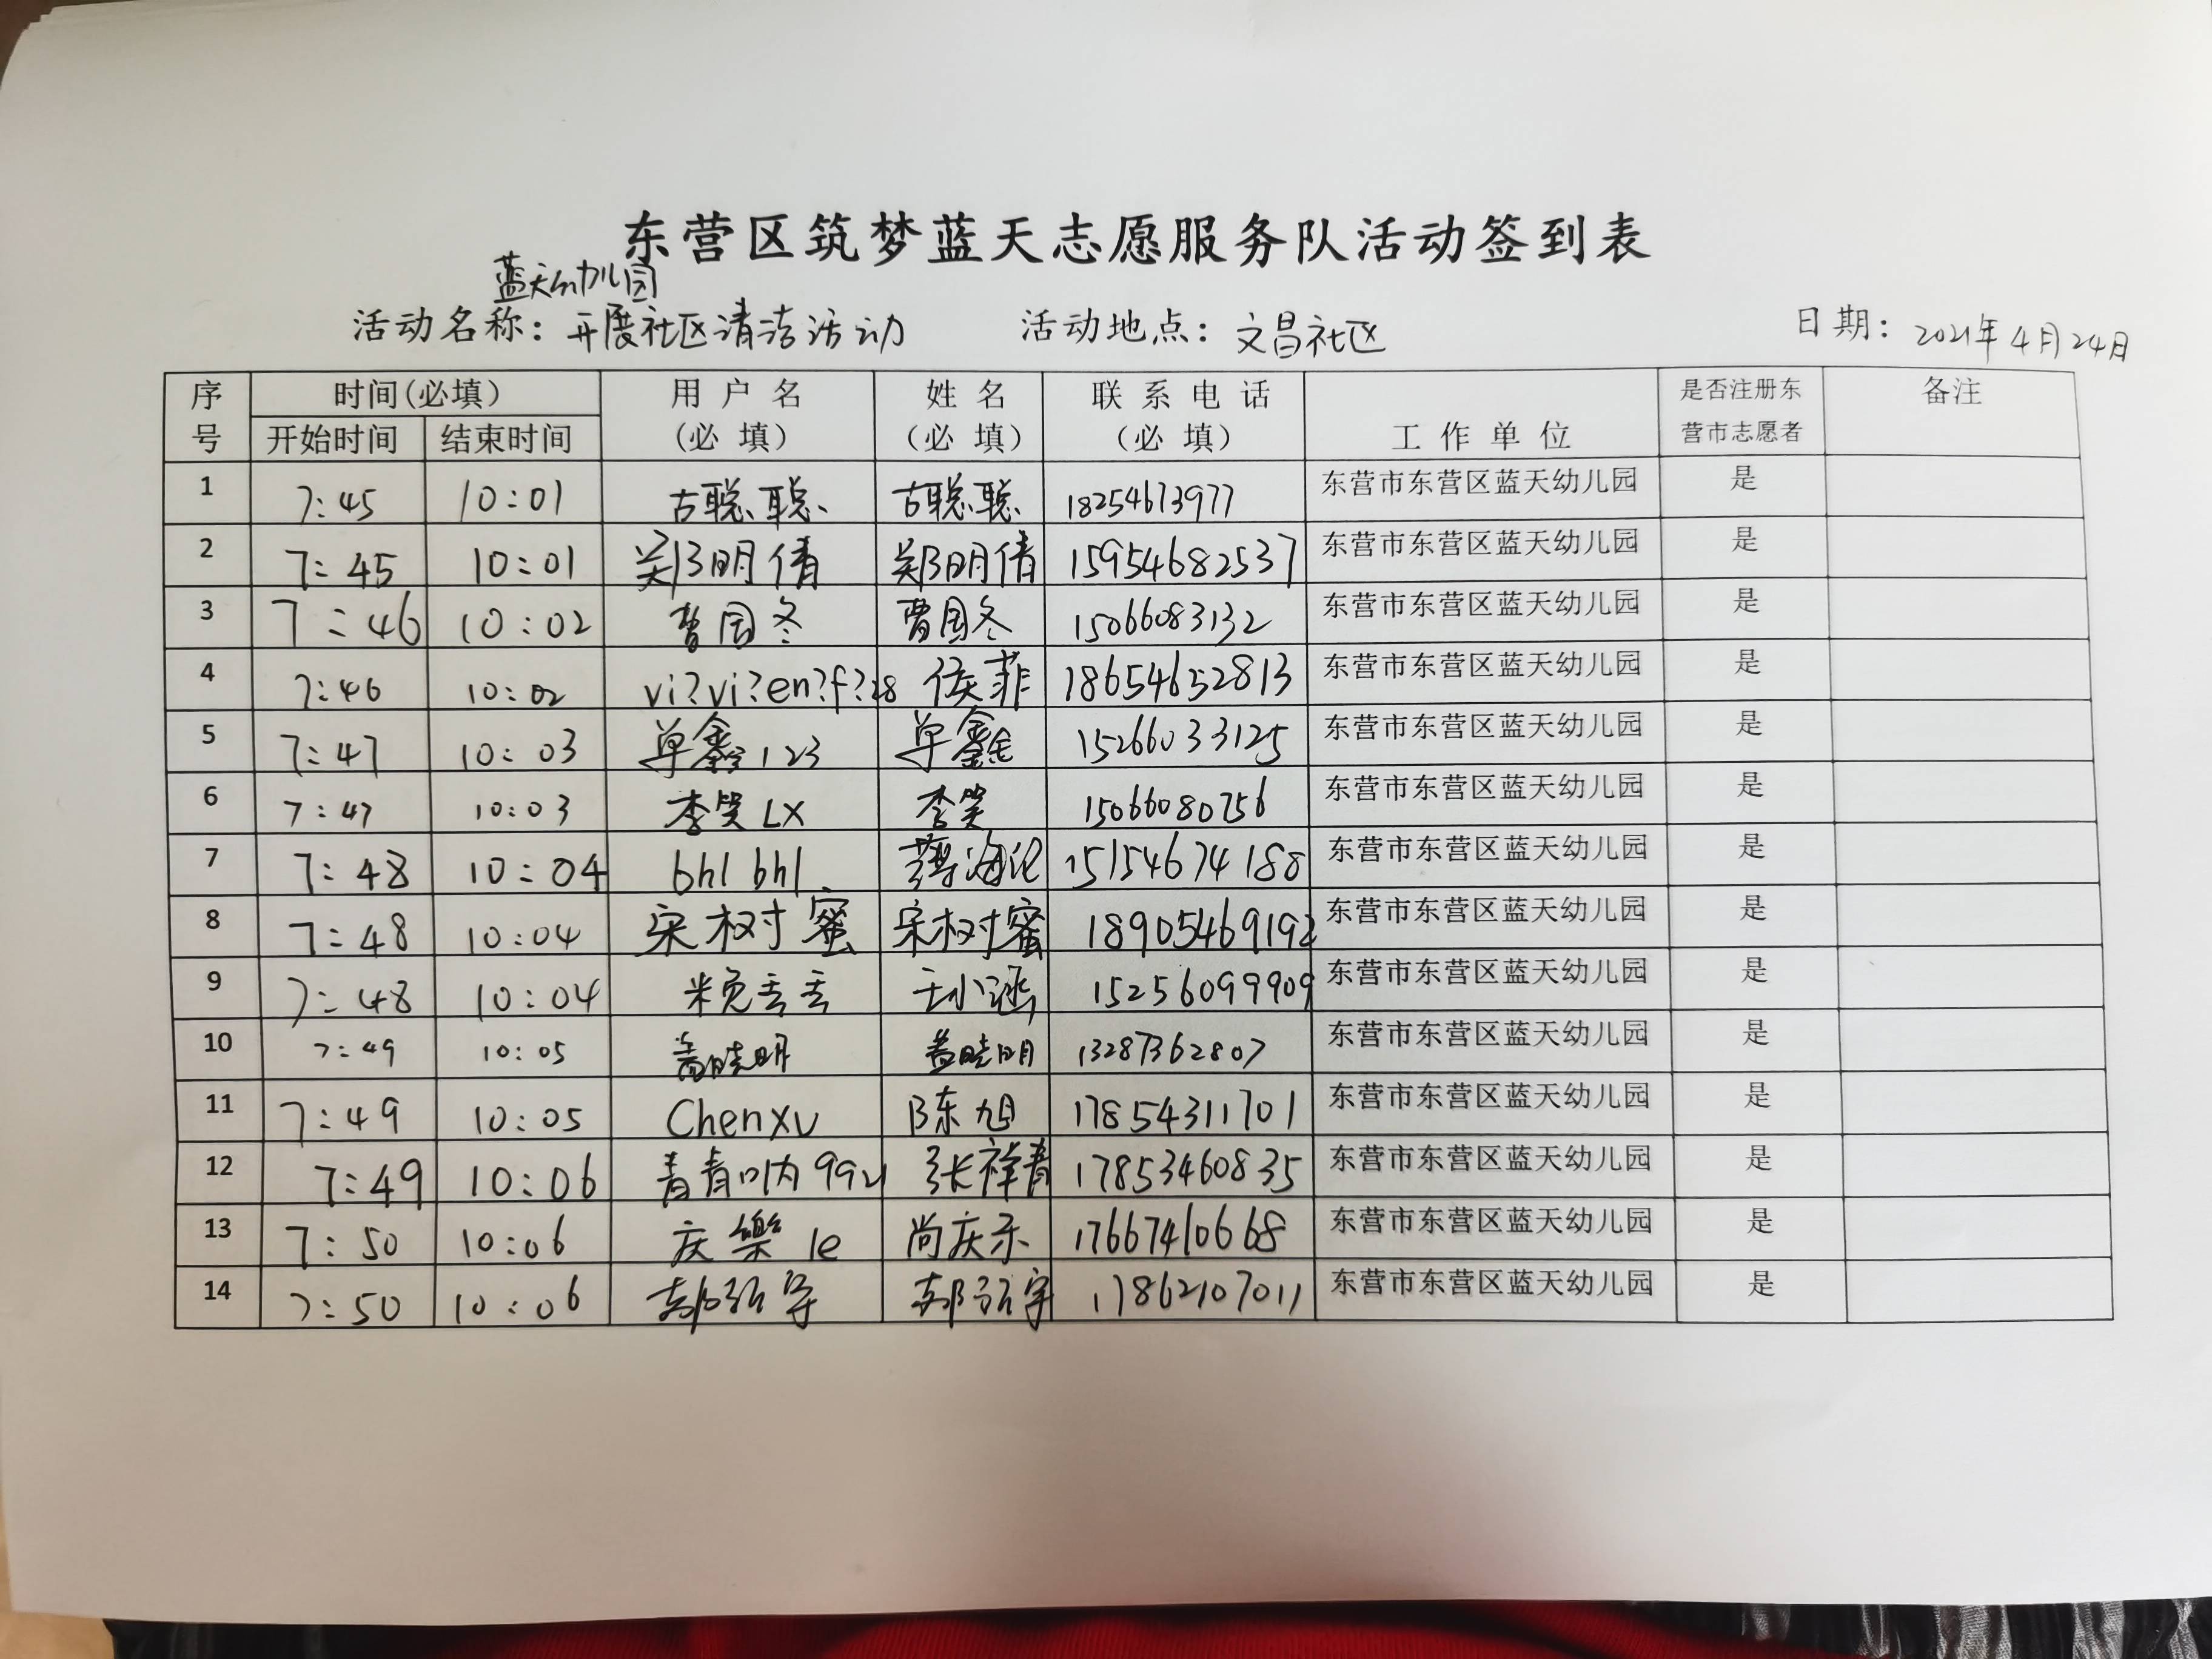 东营区筑梦蓝天志愿服务队活动签到表
蓝天幼儿园
活动名称：开展社区清洁活动 活动地点：文昌社区 日期：2021年4月24日
序号 时间(必填) 用户名(必填) 姓名(必填) 联系电话(必填) 工作单位 是否注册东营市志愿者 备注
开始时间 结束时间
1 7:45 10:01 古聪聪 古聪聪 18254673977 东营市东营区蓝天幼儿园 是
2 7:45 10:01 郑明倩 郑明倩 15954682537 东营市东营区蓝天幼儿园 是
3 7:46 10:02 曹国冬 曹国冬 15066083132 东营市东营区蓝天幼儿园 是
4 7:46 10:02 vi?vi?en?f?28 侯菲 18654652813 东营市东营区蓝天幼儿园 是
5 7:47 10:03 单鑫123 单鑫 15266033125 东营市东营区蓝天幼儿园 是
6 7:47 10:03 李笑LX 李笑 15066080756 东营市东营区蓝天幼儿园 是
7 7:48 10:04 bhl bhl 薄海 15154674188 东营市东营区蓝天幼儿园 是
8 7:48 10:04 宋树蜜 宋树蜜 18905469192 东营市东营区蓝天幼儿园 是
9 7:48 10:04 15256099909 东营市东营区蓝天幼儿园 是
10 7:49 10:05 盖晓明 盖晓明 13287362807 东营市东营区蓝天幼儿园 是
11 7:49 10:05 Chenxu 陈旭 17854311701 东营市东营区蓝天幼儿园 是
12 7:49 10:06 青青呐992 张祥青 17853460835 东营市东营区蓝天幼儿园 是
13 7:50 10:06 庆樂le 尚庆乐 17667410668 东营市东营区蓝天幼儿园 是
14 7:50 10:06 17862107011 东营市东营区蓝天幼儿园 是